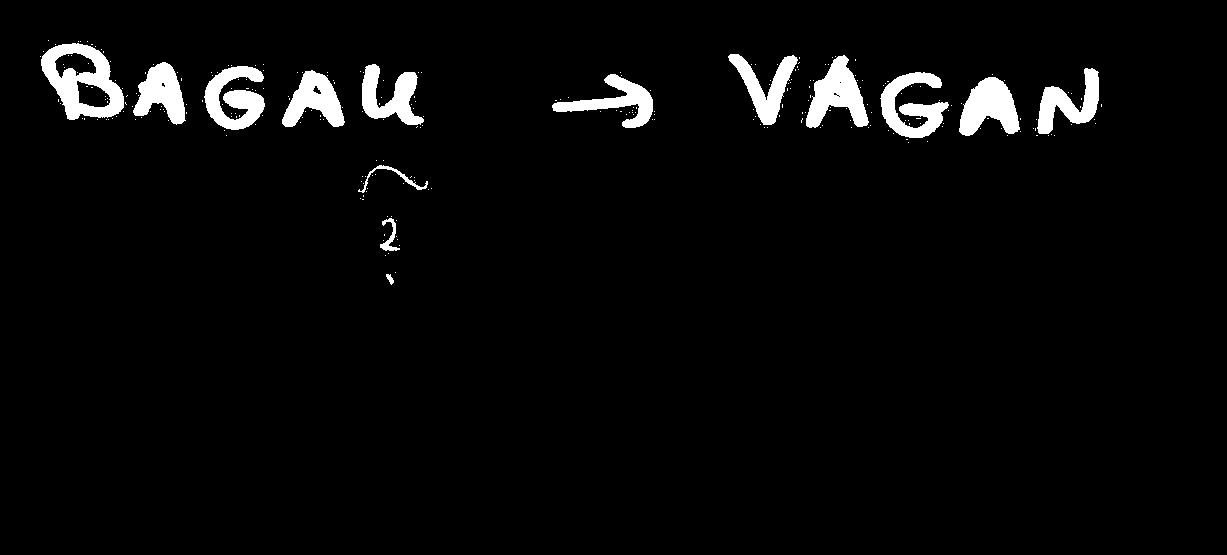 BAGAU → VAGAN
?